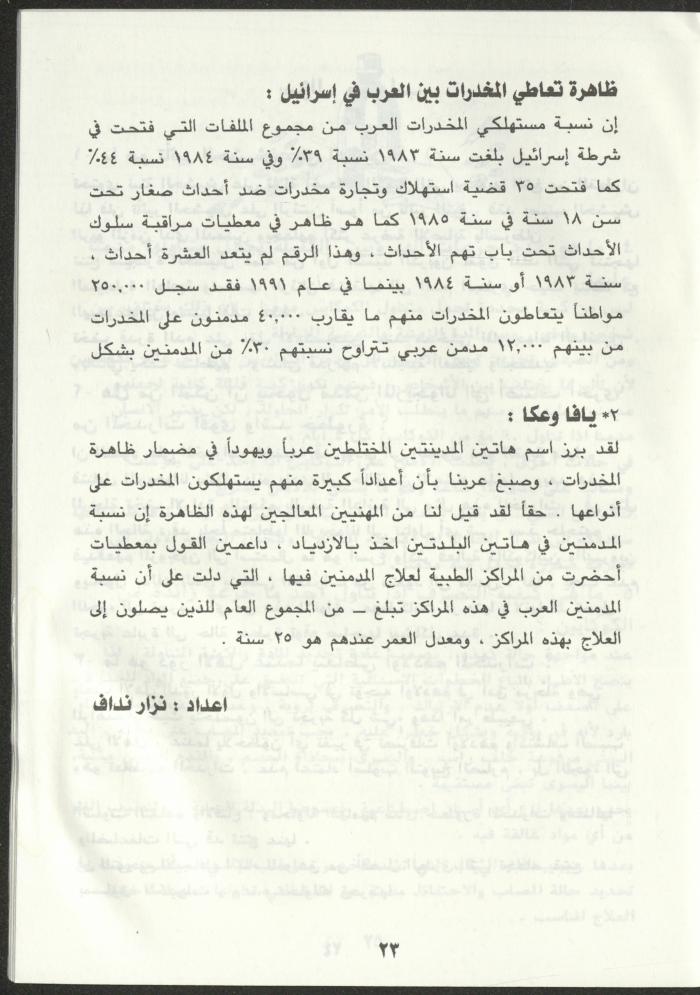 ظاهرة تعاطي المخدرات بين العرب في إسرائيل :
إن نسبة مستهلكي المخدرات العرب من مجموع الملفات التي فتحت في
شرطة إسرائيل بلغت سنة ١٩٨٣ نسبة ٣٩٪ وفي سنة ١٩٨٤ نسبة ٤٤٪
كما فتحت ٣٥ قضية استهلاك وتجارة مخدرات ضد أحداث صغار تحت
سن ١٨ سنة في سنة ١٩٨٥ كما هو ظاهر في معطيات مراقبة سلوك
الأحداث تحت باب تهم الأحداث ، وهذا الرقم لم يتعد العشرة أحداث ،
سنة ١٩٨٣ أو سنة ١٩٨٤ بينما في عام ١٩٩١ فقد سجل ٢٥٠,٠٠٠
مواطناً يتعاطون المخدرات منهم ما يقارب ٤٠,٠٠٠ مدمنون على المخدرات
من بينهم ١٢,٠٠٠ مدمن عربي تتراوح نسبتهم ٣٠٪ من المدمنين بشكل
٢* يافا وعكا :
لقد برز اسم هاتين المدينتين المختلطين عرباً ويهوداً في مضمار ظاهرة
المخدرات ، وصبغ عربنا بأن أعداداً كبيرة منهم يستهلكون المخدرات على
أنواعها . حقاً لقد قيل لنا من المهنيين المعالجين لهذه الظاهرة إن نسبة
المدمنين في هاتين البلدتين اخذ بالازدياد ، داعمين القول بمعطيات
أحضرت من المراكز الطبية لعلاج المدمنين فيها ، التي دلت على أن نسبة
المدمنين العرب في هذه المراكز تبلغ ــ من المجموع العام للذين يصلون إلى
العلاج بهذه المراكز ، ومعدل العمر عندهم هو ٢٥ سنة .
اعداد : نزار نداف
٢٣